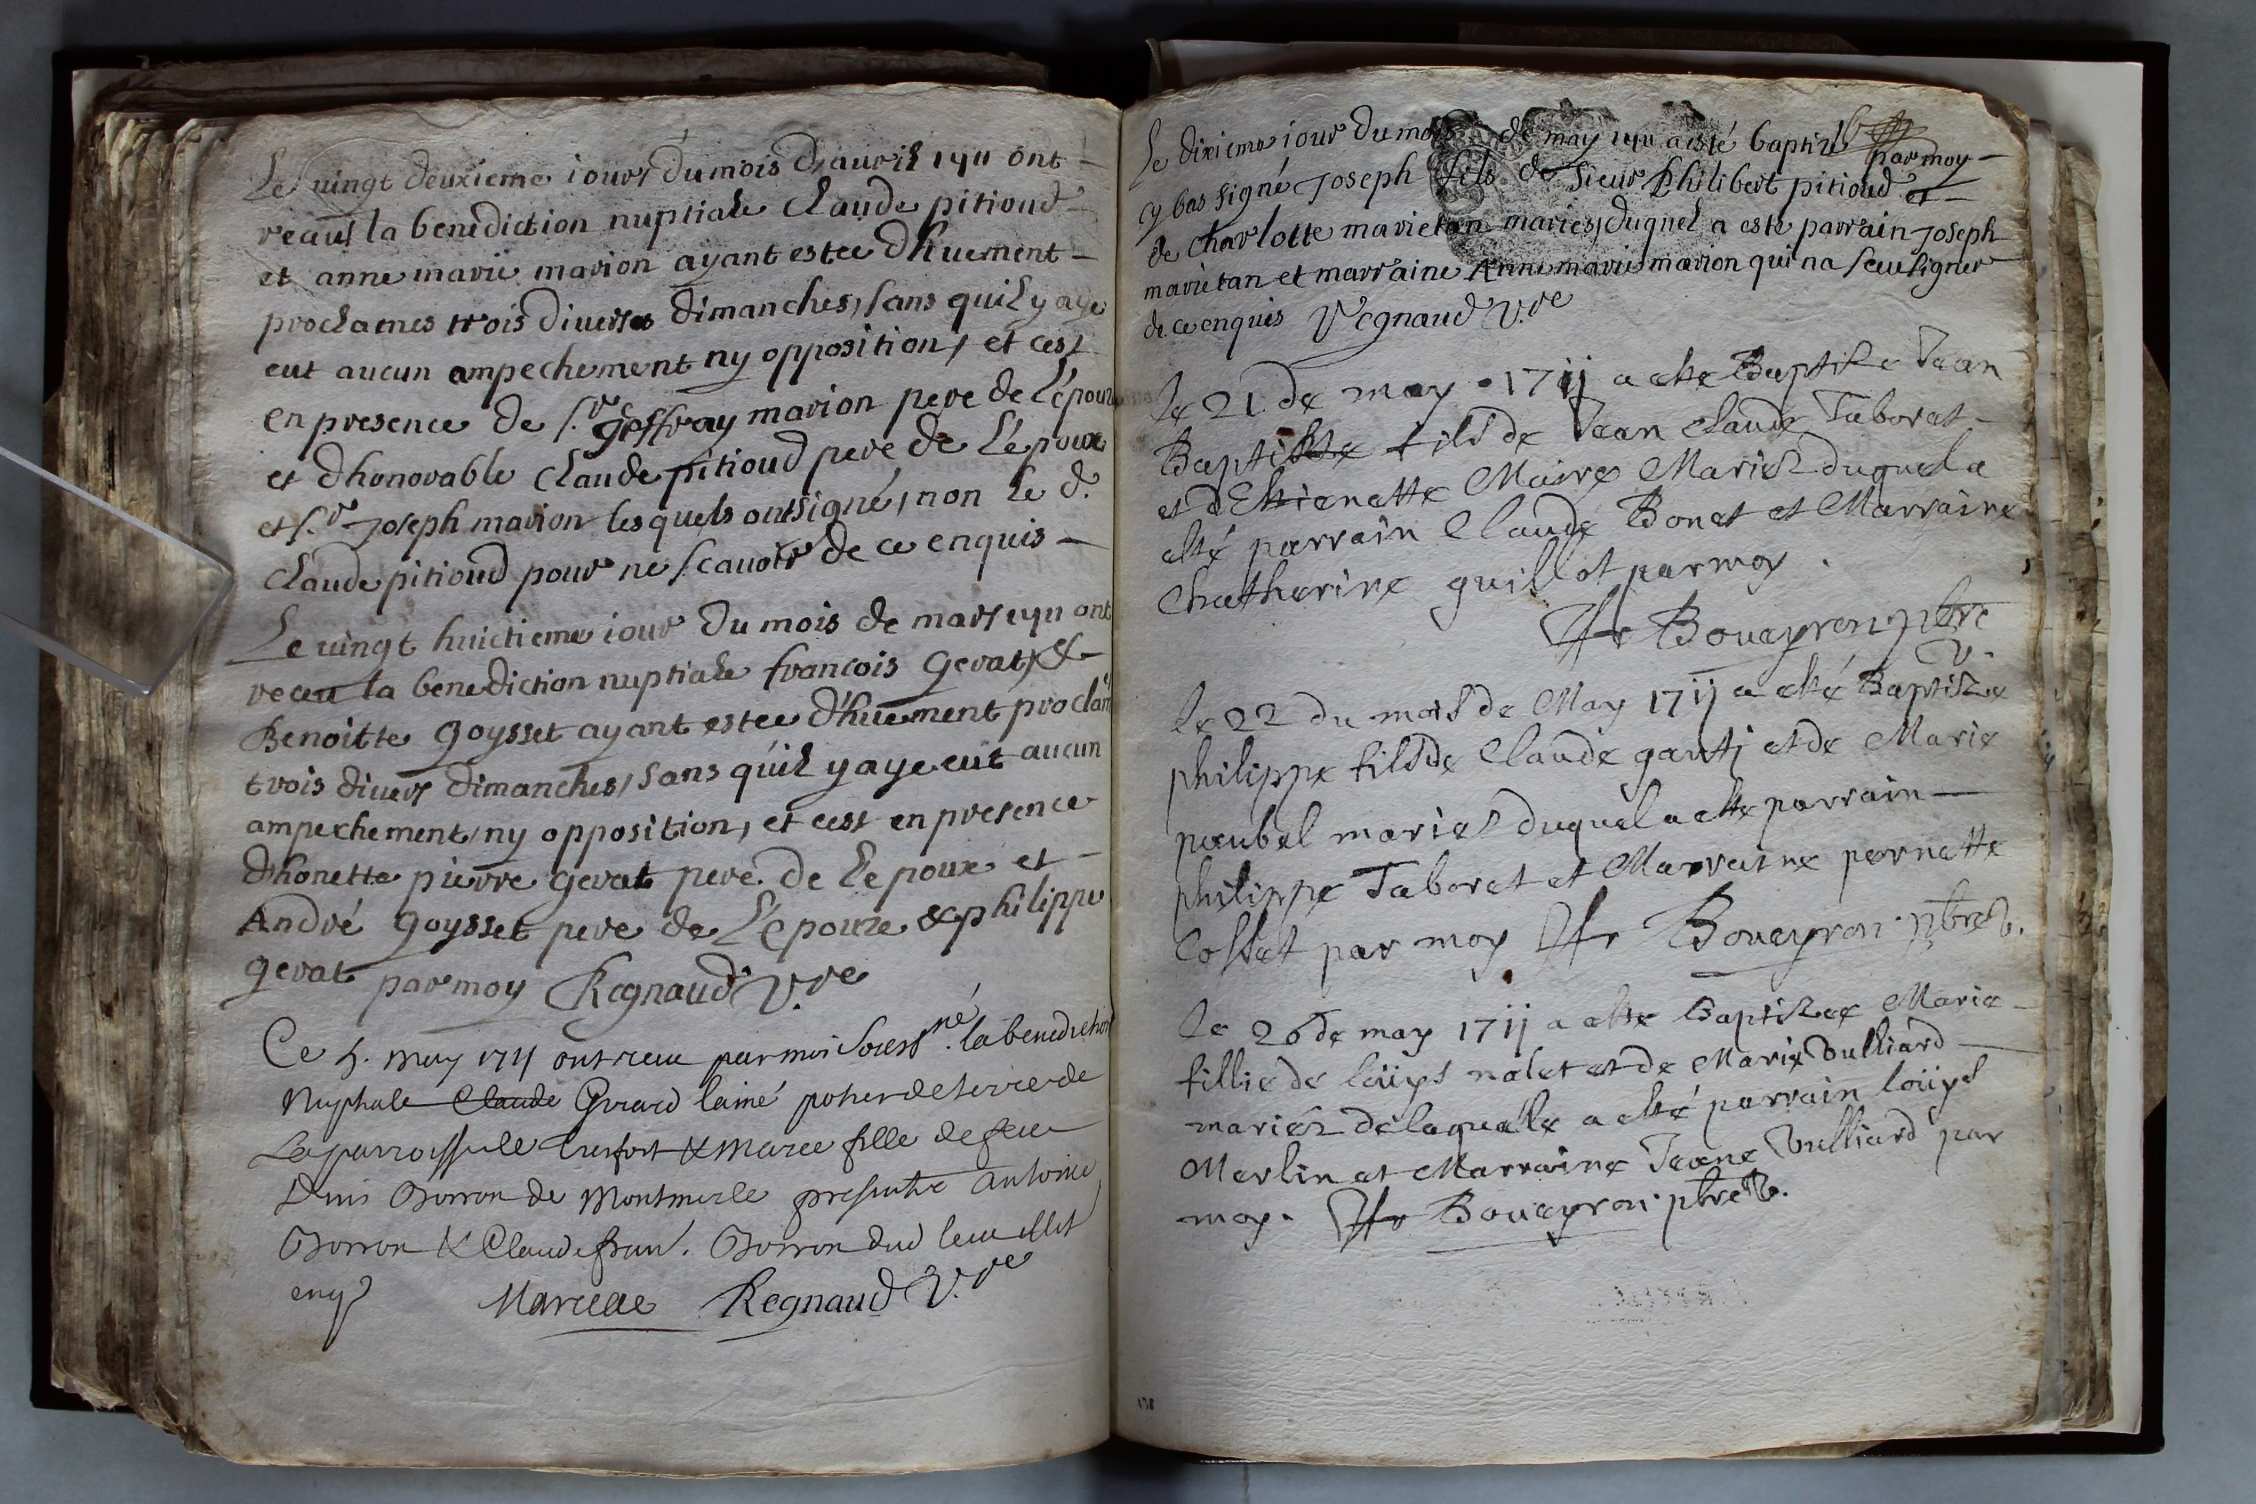 Le vingt deuxieme iour du mois d'auril 1711 ont
receus la benediction nuptiale Claude pitioud
et anne marie marion ayant estee dhuement
proclames trois diverses dimanches, sans quil y aye
eut aucun ampechement ny opposition, et cest
en presence de S.r Geffray marion pere de L'épouze
et dhonorable Claude pitioud pere de L'epoux
et S.r joseph marion lesquels ont signé, non le d.
Claude pitioud pour ne scauoir de ce enquis
Le vingt huictieme iour du mois de mars 1711 ont
receu la benediction nuptiale francois gerat &
Benoitte goysset ayant estee d'huement proclam
trois divers dimanches, sans qu'il y aye eut aucun
ampechement, ny opposition, et cest en presence
dhonette pierre gerat pere de l'epoux et
André goysset pere de L'epouze & philippe
gerat par moy Regnaud V.re
Ce 5. may 1711 ont receu par moi soussné. la benediction
Nuptiale Claude Girard lainé potier de terre de
La parroisse de Treffort & Marie fille de feu
Denis Borron de Montmerle presents antoine
Borron & Claude fran. Borron dud lieu illit
enq
Marceae Regnaud V.re
Le dixieme iour du mois de may 1711 a esté baptisé par moy
cy bas signé Joseph fils de Sieur Philibert pitioud et
de charlotte marietan mariés, duquel a esté parrain joseph
marietan et marraine Anne marie marion qui na sceu signer
de ce enquis Regnaud V.re
le 21 de may 1711 a este Baptise Jean
Baptiste fils de Jean Claude Taboret
et d'Etienette Maire Mariez duquel a
esté parrain Claude Bonet et Marraine
Chatherine guillot par moy.
Boueyron pbre
V.
le 22 du mois de May 1711 a esté Baptize
philippe fils de Claude ganti et de Marie
poeubel mariez duquel a este parrain
philippe Taboret et Marraine pernette
Cosset par moy Boueyron pbre V.
le 26 de may 1711 a este Baptizee Marie
fillie de loüys nalet et de Marie Vulliard
mariéz de laquelle a esté parrain loüys
Merlin et Marraine Jeane Vulliard par
moy. Boueyron pbre V.
178